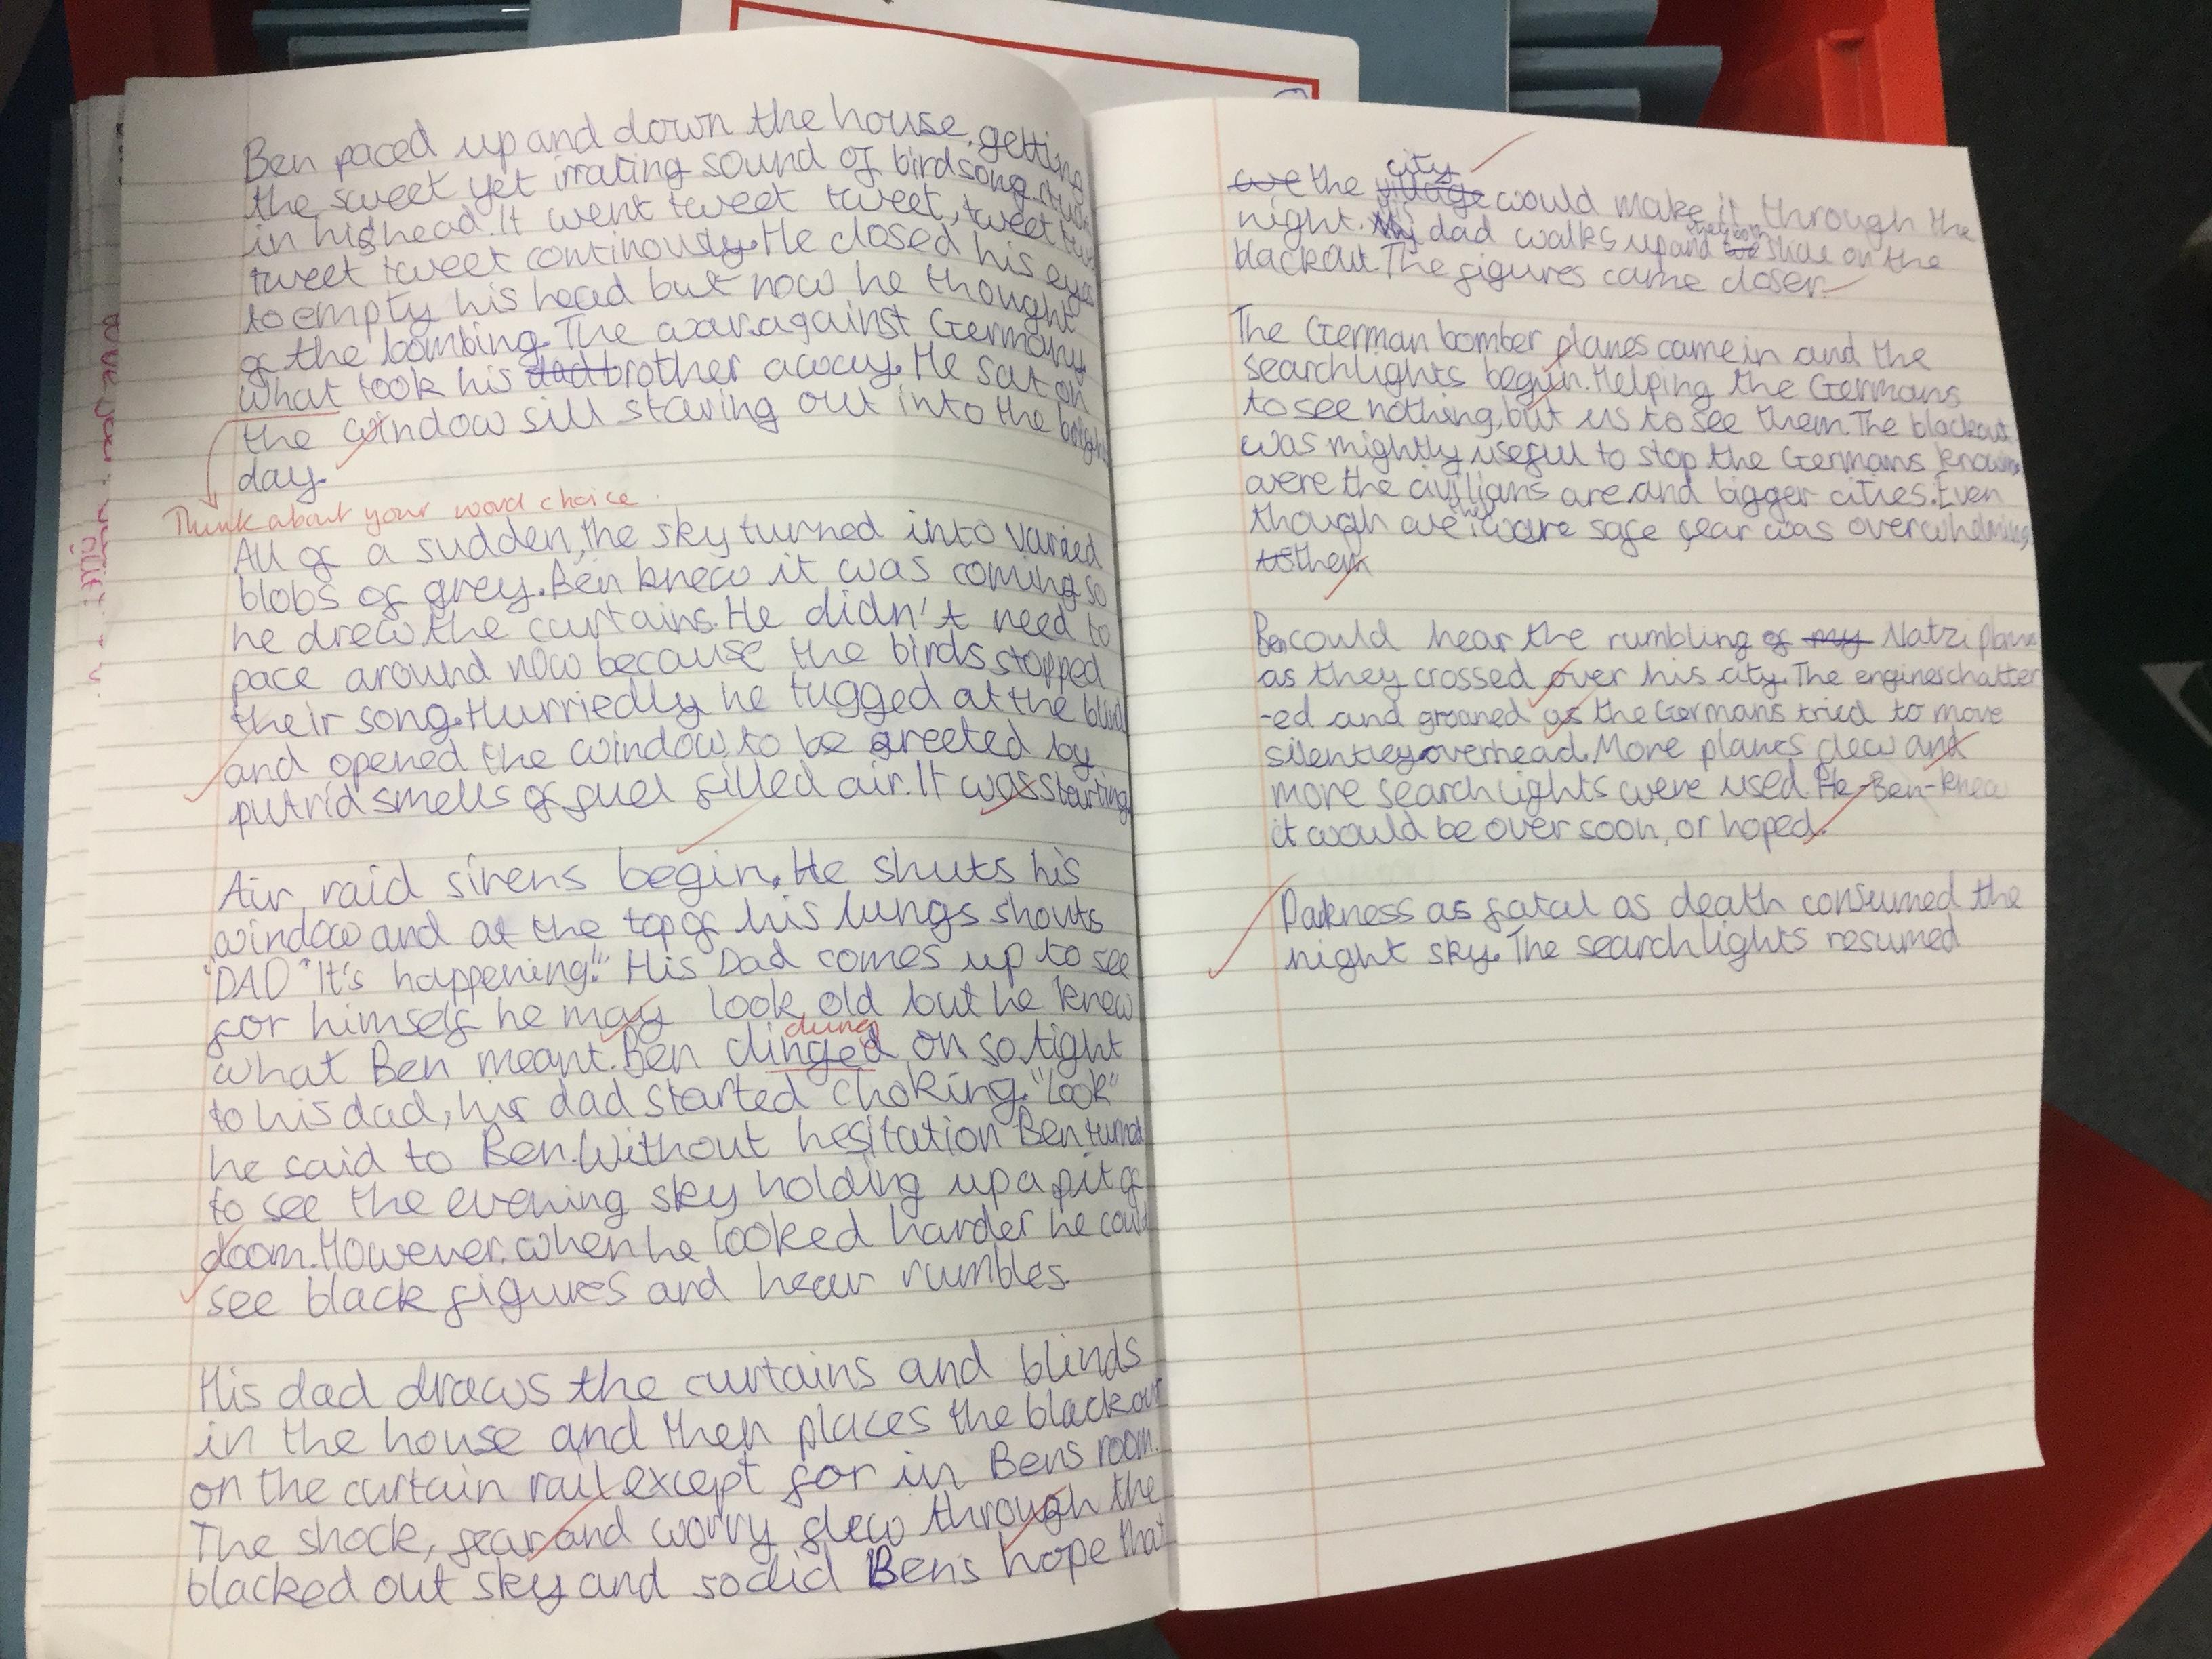 Ben paced up and down the house, getting
the sweet yet irrating sound of birdsong stuck
in his head. It went tweet tweet, tweet
tweet tweet continously. He closed his eyes
to empty his head but now he thought
of the bombing. The war against Germany
what took his dad brother away. He sat on
the window sill staring out into the bright
day.
Think about your word choice.
All of a sudden, the sky turned into varied
blobs of grey. Ben knew it was coming so
he drew the curtains. He didn't need to
pace around now because the birds stopped
their song. Hurriedly he tugged at the blind
and opened the window to be greeted by
putrid smells of fuel filled air. It was starting
Air raid sirens begin. He shuts his
window and at the top of his lungs shouts
"DAD "It's happening!" His Dad comes up to see
for himself he may look old but he knew
clung
what Ben meant. Ben clinged on so tight
to his dad, his dad started choking. "Look"
he said to Ben. Without hesitation Ben turned
to see the evening sky holding up a pit of
doom. However, when he looked harder he could
see black figures and hear rumbles.
His dad draws the curtains and blinds
in the house and then places the blackout
on the curtain rail except for in Bens room.
The shock, fear and worry flew through the
blacked out sky and so did Ben's hope that
city
we the village would make it through the
night. dad walks up and we on the
blackout. The figures came closer.
The German bomber planes came in and the
searchlights begun. Helping the Germans
to see nothing, but us to see them. The blackout
was mightly useful to stop the Germans knowing
were the civilians are and bigger cities. Even
they
though we were safe fear was overwhelming
us them
Ben could hear the rumbling of my Natzi planes
as they crossed over his city. The engines chatter
-ed and groaned as the Germans tried to move
silentley overhead. More planes flew and
more searchlights were used. He-Ben-knew
it would be over soon, or hoped.
Darkness as fatal as death consumed the
night sky. The searchlights resumed